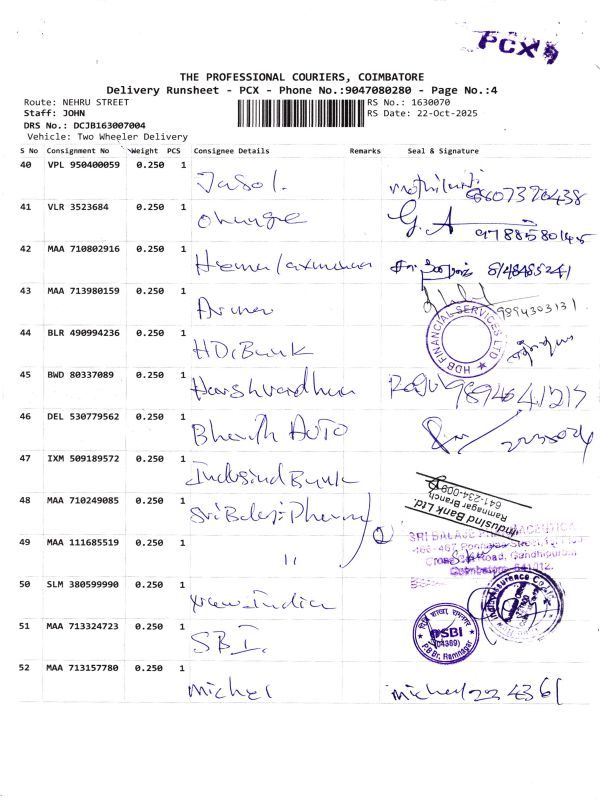 PCX
THE PROFESSIONAL COURIERS, COIMBATORE
Delivery Runsheet - PCX - Phone No.:9047080280 - Page No.:4
Route: NEHRU STREET RS No.: 1630070
Staff: JOHN RS Date: 22-Oct-2025
DRS No.: DCJB163007004
Vehicle: Two Wheeler Delivery
S No Consignment No Weight PCS Consignee Details Remarks Seal & Signature
40 VPL 950400059 0.250 1 Jasol.
41 VLR 3523684 0.250 1 G.A 9788580145
42 MAA 710802916 0.250 1 Hema
43 MAA 713980159 0.250 1 9894303131
44 BLR 490994236 0.250 1 HDB Bank HDB FINANCIAL SERVICES LTD
45 BWD 80337089 0.250 1 Harshvardhan
46 DEL 530779562 0.250 1 Bharth AUTO
47 IXM 509189572 0.250 1 Indusind Bank
Indusind Bank Ltd.
Ramnagar Branch
641-234-009
48 MAA 710249085 0.250 1 Sri Balaji Pharma
49 MAA 111685519 0.250 1 "
Road, Gandhipuram
Coimbatore, 641012.
50 SLM 380599990 0.250 1 India
51 MAA 713324723 0.250 1 SBI. SBI P.B.Br. Ramnagar
52 MAA 713157780 0.250 1 michel michel 224361